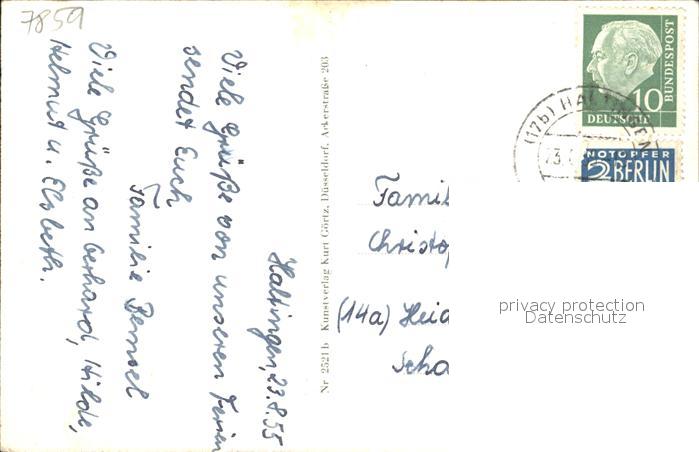 7859
Haltingen, 23.8.55
Viele Grüße von unseren Ferien
sendet Euch
Familie Bemsel
Viele Grüße an Gerhard, Hilde,
Helmut u. Elsbeth.
Nr 2521 b Kunstverlag Kurt Görtz, Düsseldorf, Ackerstraße 203
10
DEUTSCHE
BUNDESPOST
(17b) HALTINGEN
23.
NOTOPFER
2 BERLIN
Famil
Christop
(14a) Heid
Scha
privacy protection
Datenschutz